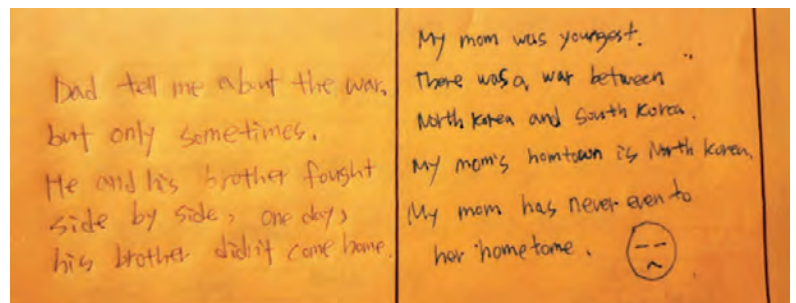 Dad tell me about the war,
but only sometimes.
He and his brother fought
side by side, one day,
his brother didn't come home.
My mom was youngest.
There was a war between
North Korea and South Korea.
My mom's homtown is North Korea.
My mom has never even to
her hometome.